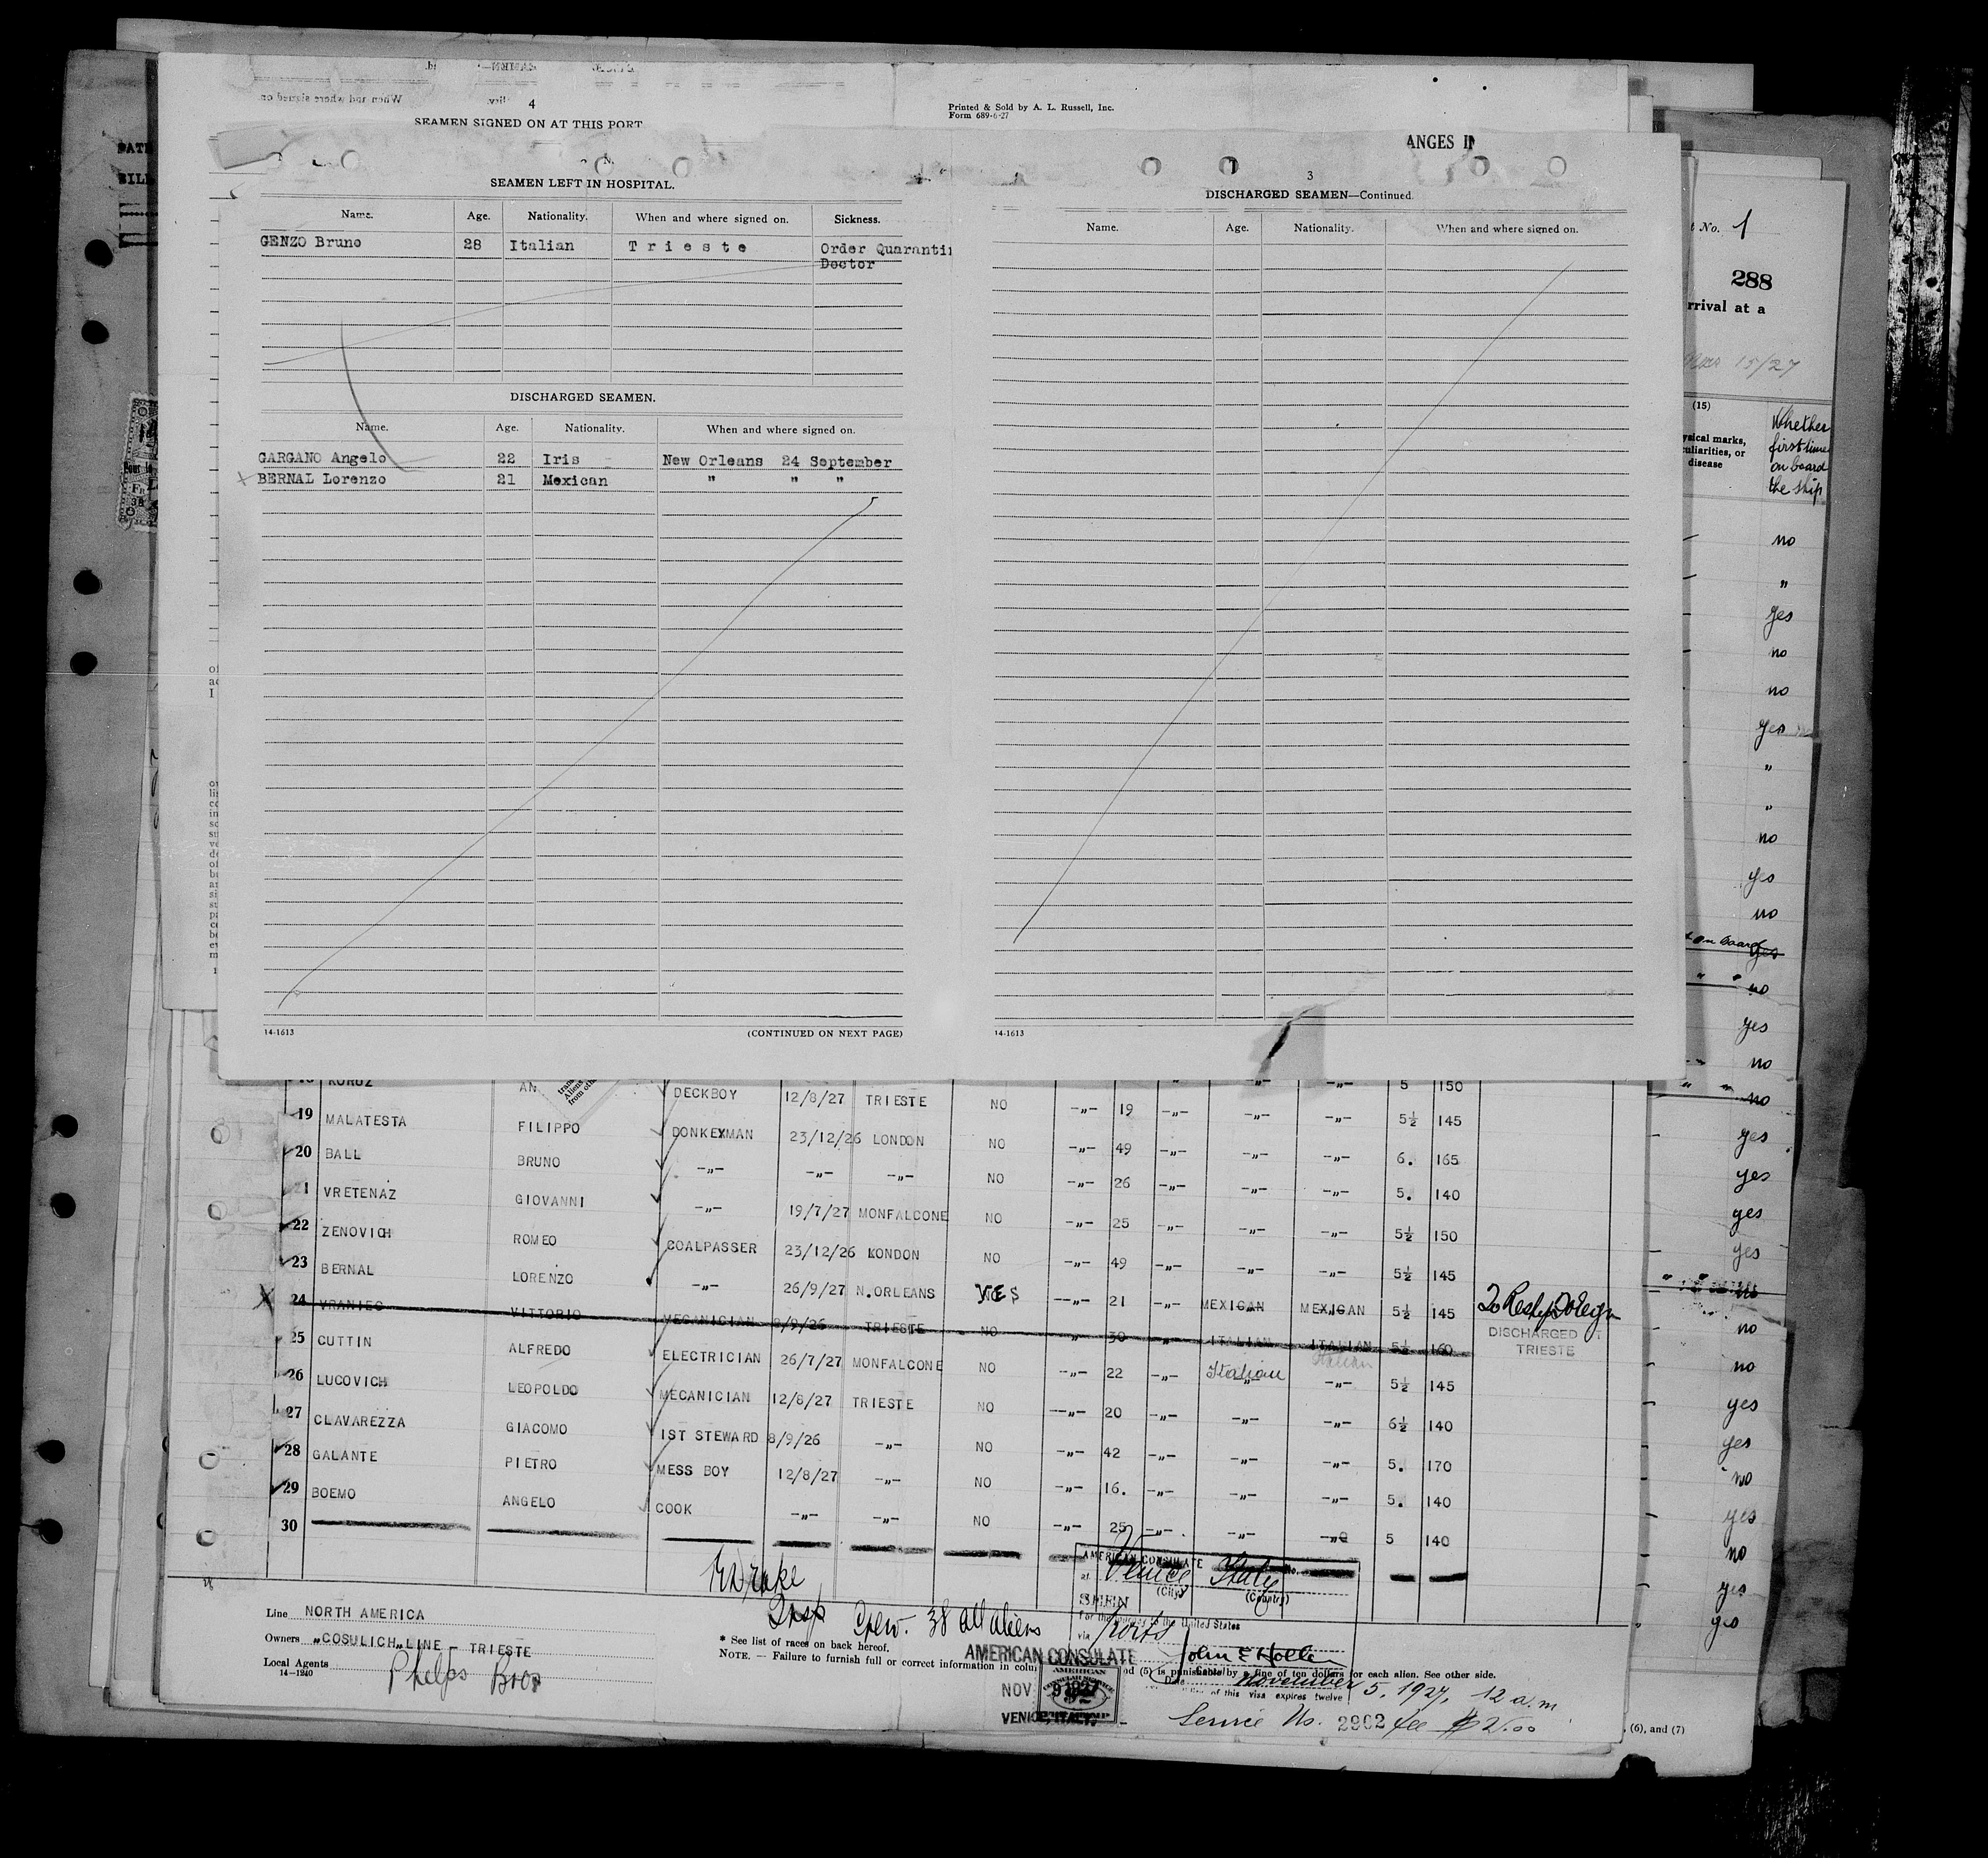 4
SEAMEN SIGNED ON AT THIS PORT.
Printed & Sold by A. L. Russell, Inc.
Form 689-6-27
SEAMEN LEFT IN HOSPITAL.
Name. Age. Nationality. When and where signed on. Sickness.
GENZO Bruno 28 Italian Trieste Order Quaranti
Doctor
DISCHARGED SEAMEN.
Name. Age. Nationality. When and where signed on.
GARGANO Angelo 22 Iris New Orleans 24 September
BERNAL Lorenzo 21 Mexican " " "
14-1613 (CONTINUED ON NEXT PAGE)
ANGES IN
3
DISCHARGED SEAMEN—Continued.
Name. Age. Nationality. When and where signed on.
14-1613
t No. 1
288
rrival at a
15/27
(15)
ysical marks,
uliarities, or
disease
Whether
first time
on board
the ship
no
"
yes
no
no
yes
"
"
no
yes
no
on Board yes
" " no
yes
no
" " no
yes
yes
yes
yes
no
no
yes
yes
no
yes
no
yes
yes
KORUZ AN DECKBOY 12/8/27 TRIESTE NO -"- 19 -"- -"- -"- 5 150
19 MALATESTA FILIPPO DONKEYMAN 23/12/26 LONDON NO -"- 49 -"- -"- -"- 5½ 145
20 BALL BRUNO -"- -"- -"- NO -"- 26 -"- -"- -"- 6. 165
21 VRETENAZ GIOVANNI -"- 19/7/27 MONFALCONE NO -"- 25 -"- -"- -"- 5. 140
22 ZENOVICH ROMEO COALPASSER 23/12/26 LONDON NO -"- 49 -"- -"- -"- 5½ 150
23 BERNAL LORENZO -"- 26/9/27 N.ORLEANS YES -"- 21 -"- MEXICAN MEXICAN 5½ 145
24 VRANIEC VITTORIO MECANICIAN 8/9/26 TRIESTE NO " 30 " ITALIAN ITALIAN 5½ 160
DISCHARGED AT
TRIESTE
25 CUTTIN ALFREDO ELECTRICIAN 26/7/27 MONFALCONE NO -"- 22 -"- Italian -"- Italian -"- 5½ 145
26 LUCOVICH LEOPOLDO MECANICIAN 12/8/27 TRIESTE NO -"- 20 -"- -"- -"- 6½ 140
27 CLAVAREZZA GIACOMO 1ST STEWARD 8/9/26 -"- NO -"- 42 -"- -"- -"- 5. 170
28 GALANTE PIETRO MESS BOY 12/8/27 -"- NO -"- 16. -"- -"- -"- 5. 140
29 BOEMO ANGELO COOK -"- -"- NO -"- 25 -"- -"- -"- 5 140
30
Insp Crew. 38 all aliens
AMERICAN CONSULATE
at Venice Italy
(City) (Country)
SEEN
For the journey to the United States
via Ports
John E Holler
Date November 5, 1927, 12 a.m.
of this visa expires twelve
Service No. 2962 fee $2.00
Line NORTH AMERICA
Owners „COSULICH„LINE - TRIESTE
Local Agents Phelps Bros
14-1240
* See list of races on back hereof.
NOTE. — Failure to furnish full or correct information in colu d (5) is punishable by a fine of ten dollars for each alien. See other side.
AMERICAN CONSULATE
NOV 9 1927
VENICE, ITALY.
AMERICAN
, (6), and (7)